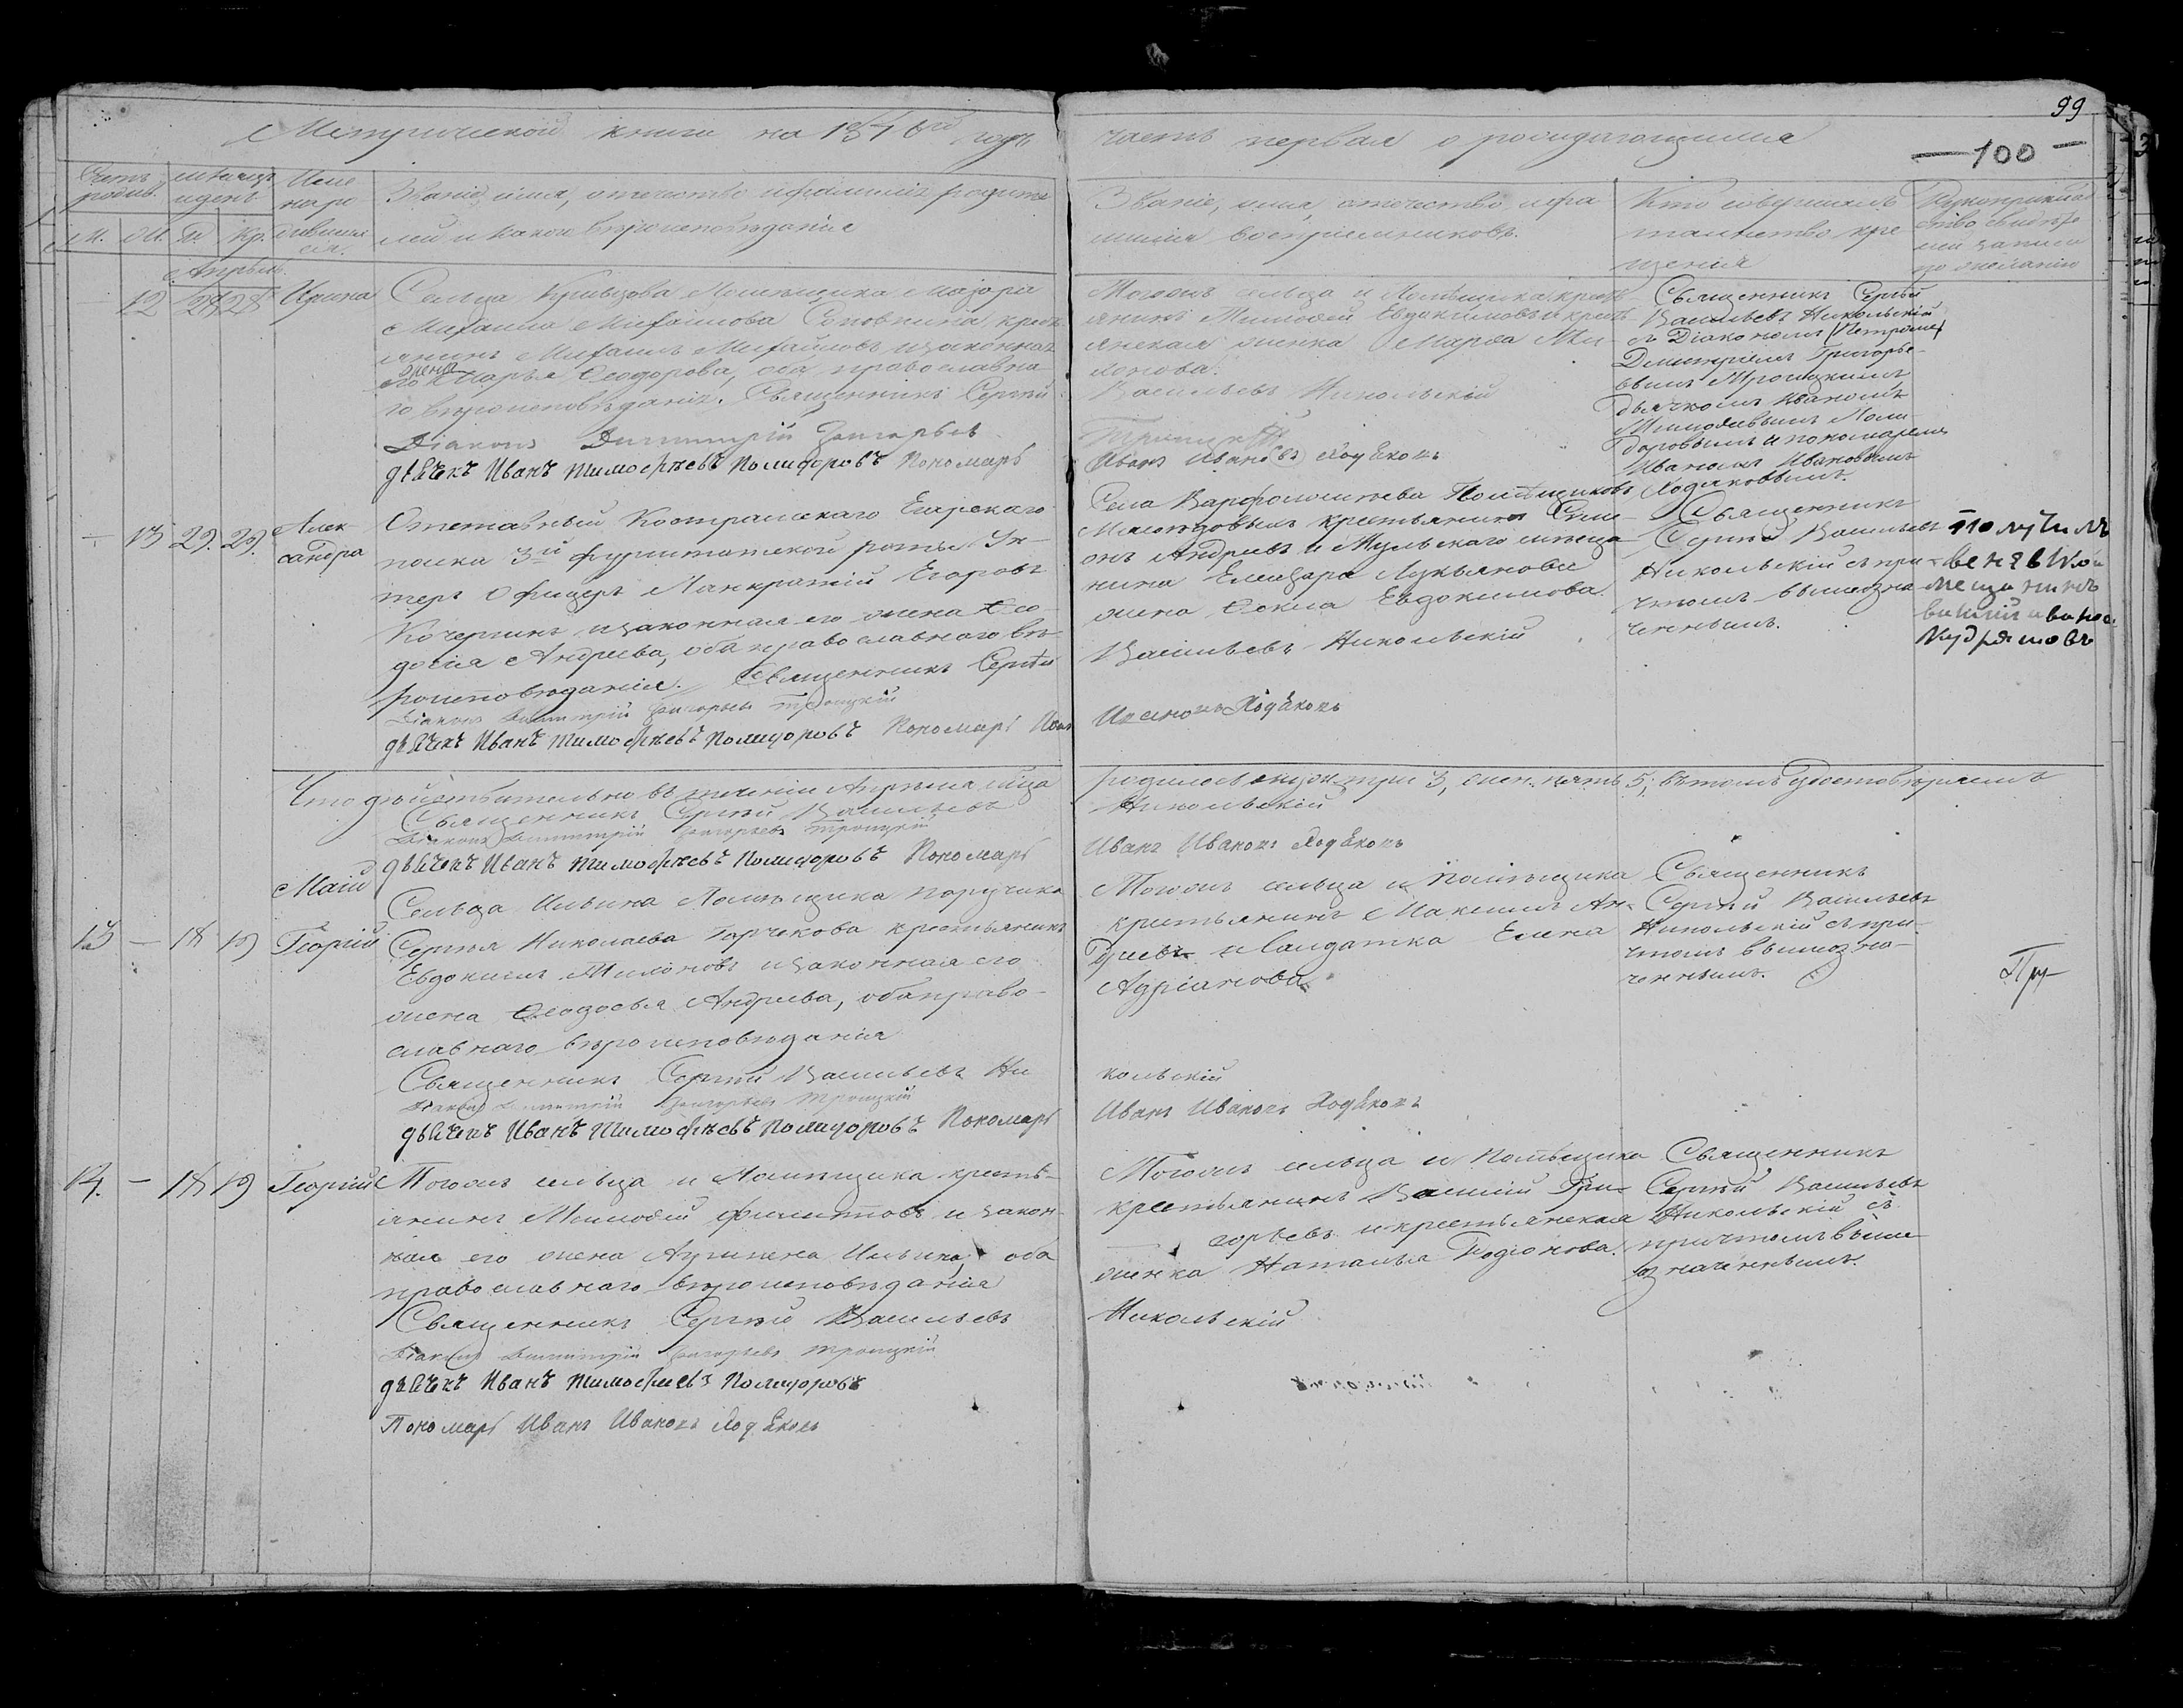 99
Метрической книги на 18 годъ
часть первая о рождающихся
—100—
Счетъ родив.
мѣсяцъ и день
Имена родившихся.
Званіе, имя, отчество и фамилія родителей и какого вѣроисповѣданія
Званіе, имя, отчество и фамилія воспріемниковъ.
Кто совершалъ таинство крещенія
Рукоприкладство свидѣтелей записи по желанію
М. Ж. Р. Кр.
Апрѣль.
12 27 28 Ирина
Сельца помѣщика маіора
Михаила Михайлова крестьянинъ
Михаилъ Михайловъ и законная
его жена Марья Ѳеодорова, оба православна
го вѣроисповѣданія. Священникъ Сергѣй
Діаконъ Димитрій Григорьевъ
дьячекъ Иванъ Тимофѣевъ Полидоровъ Пономарь
Тогожъ сельца и помѣщика кресть-
янинъ Тимофей Евдокимовъ и кресть-
янская женка Марѳа Ти-
хонова.
Васильевъ Никольскій
Троицкій
Иванъ Ивановъ Ходяковъ
Священникъ Сергѣй
Васильевъ Никольскій
съ Діакономъ
Димитріемъ Григорье-
вымъ Троицкимъ
дьячкомъ Иваномъ
Тимофѣевымъ Поли-
доровымъ и пономаремъ
Иваномъ Ивановымъ
Ходяковымъ.
— 13 29. 29. Алек
сандра
Отставный Костромскаго Егарскаго
полка 3й фурштатской роты Ун-
теръ Офицеръ Панкратій Егоровъ
Кочергинъ и законная его жена Ѳео-
досія Андреева, оба православнаго вѣ-
роисповѣданія. Священникъ Сергѣй
Діаконъ Димитрій Григорьевъ Троицкій
дьячекъ Иванъ Тимофѣевъ Полидоровъ Пономарь Иванъ
Села Варфоломеева Помѣщиковъ
крестьянинъ Семе-
онъ Андреевъ и Тульскаго мѣща
нина Елизара Лукьянова
жена Ѳекла Евдокимова.
Васильевъ Никольскій
Ивановъ Ходяковъ
Священникъ
Сергѣй Васильевъ
Никольскій съ при-
чтомъ вышеозна
ченнымъ.
мещанинъ
василий иванов
Кудряшовъ
Что дѣйствительно въ теченіи Апрѣля м҃ца
родилось муж. три 3, жен. пять 5; въ томъ удостовѣряемъ
Священникъ Сергѣй Васильевъ
Никольскій
Діаконъ Димитрій Григорьевъ Троицкій
дьячекъ Иванъ Тимофѣевъ Полидоровъ Пономарь
Иванъ Ивановъ Ходяковъ
Маій
13 — 18 19 Георгій
Сельца Ильина Помѣщика поручика
Сергѣя Николаева Горчекова крестьянинъ
Евдокимъ Тихоновъ и законная его
жена Ѳеодосья Андреева, оба право-
славнаго вѣроисповѣданія
Священникъ Сергѣй Васильевъ Ни
Діаконъ Димитрій Григорьевъ Троицкій
дьячекъ Иванъ Тимофѣевъ Полидоровъ Пономарь
Тогожъ сельца и Помѣщика
крестьянинъ Максимъ Ан-
дреевъ и Салдатка Елена
Адріанова.
кольскій
Иванъ Ивановъ Ходяковъ
Священникъ
Сергѣй Васильевъ
Никольскій съ при-
чтомъ вышеозна-
ченнымъ.
14. — 18 19 Георгій
Тогожъ сельца и Помѣщика кресть-
янинъ Тимофей Филиповъ и закон-
ная его жена Агрипена Ильина, оба
православнаго вѣроисповѣданія
Священникъ Сергѣй Васильевъ
Діаконъ Димитрій Григорьевъ Троицкій
дьячекъ Иванъ Тимофеевъ Полидоровъ
Пономарь Иванъ Ивановъ Ходяковъ
Тогожъ сельца и Помѣщика
крестьянинъ Василій Гри-
горьевъ и крестьянская
женка Наталья Родіонова.
Никольскій
Священникъ
Сергѣй Васильевъ
Никольскій съ
причтомъ выше
означеннымъ.